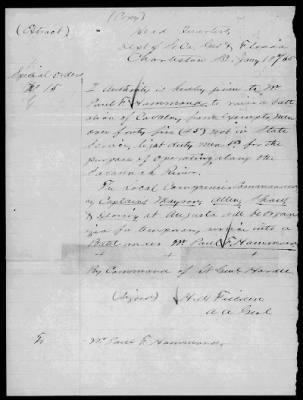 (Copy)
(Extract) Head Quarters
Dept of So Ca, Geo & Florida
Charleston Jany 17th 65
Special Orders
No 15
I Authority is hereby given to Mr
Paul F. Hammond to raise a Batt
alion of Cavalry from Exempts, men
over forty five (45) not in State
Service, light duty men &c for the
purpose of Operating along the
Savannah River.
The Local Companies
of Captains Allen,
& at Augusta will be organ
ized for temporary service into a
Battn under Mr Paul F. Hammond
By Command of Lt Genl Hardee
(Signed)
A A Genl
To Mr Paul F. Hammond